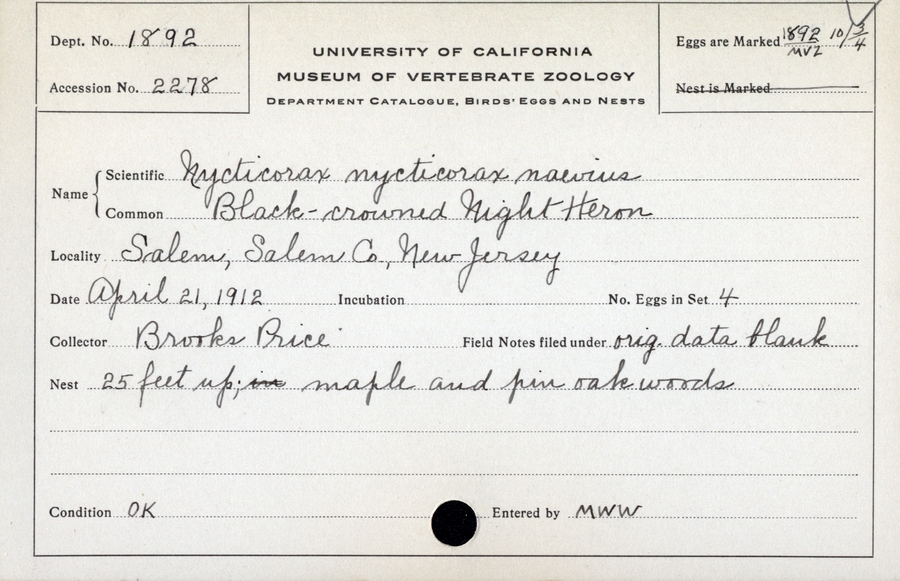 Dept. No. 1892
Accession No. 2278
UNIVERSITY OF CALIFORNIA
MUSEUM OF VERTEBRATE ZOOLOGY
DEPARTMENT CATALOGUE, BIRDS' EGGS AND NESTS
Eggs are Marked 1892/MVZ 10/3/4
Nest is Marked
Name { Scientific Nycticorax nycticorax naevius
Common Black-crowned Night Heron
Locality Salem, Salem Co., New Jersey
Date April 21, 1912 Incubation No. Eggs in Set 4
Collector Brooks Price Field Notes filed under orig. data blank
Nest 25 feet up; in maple and pin oak woods
Condition OK Entered by MWW